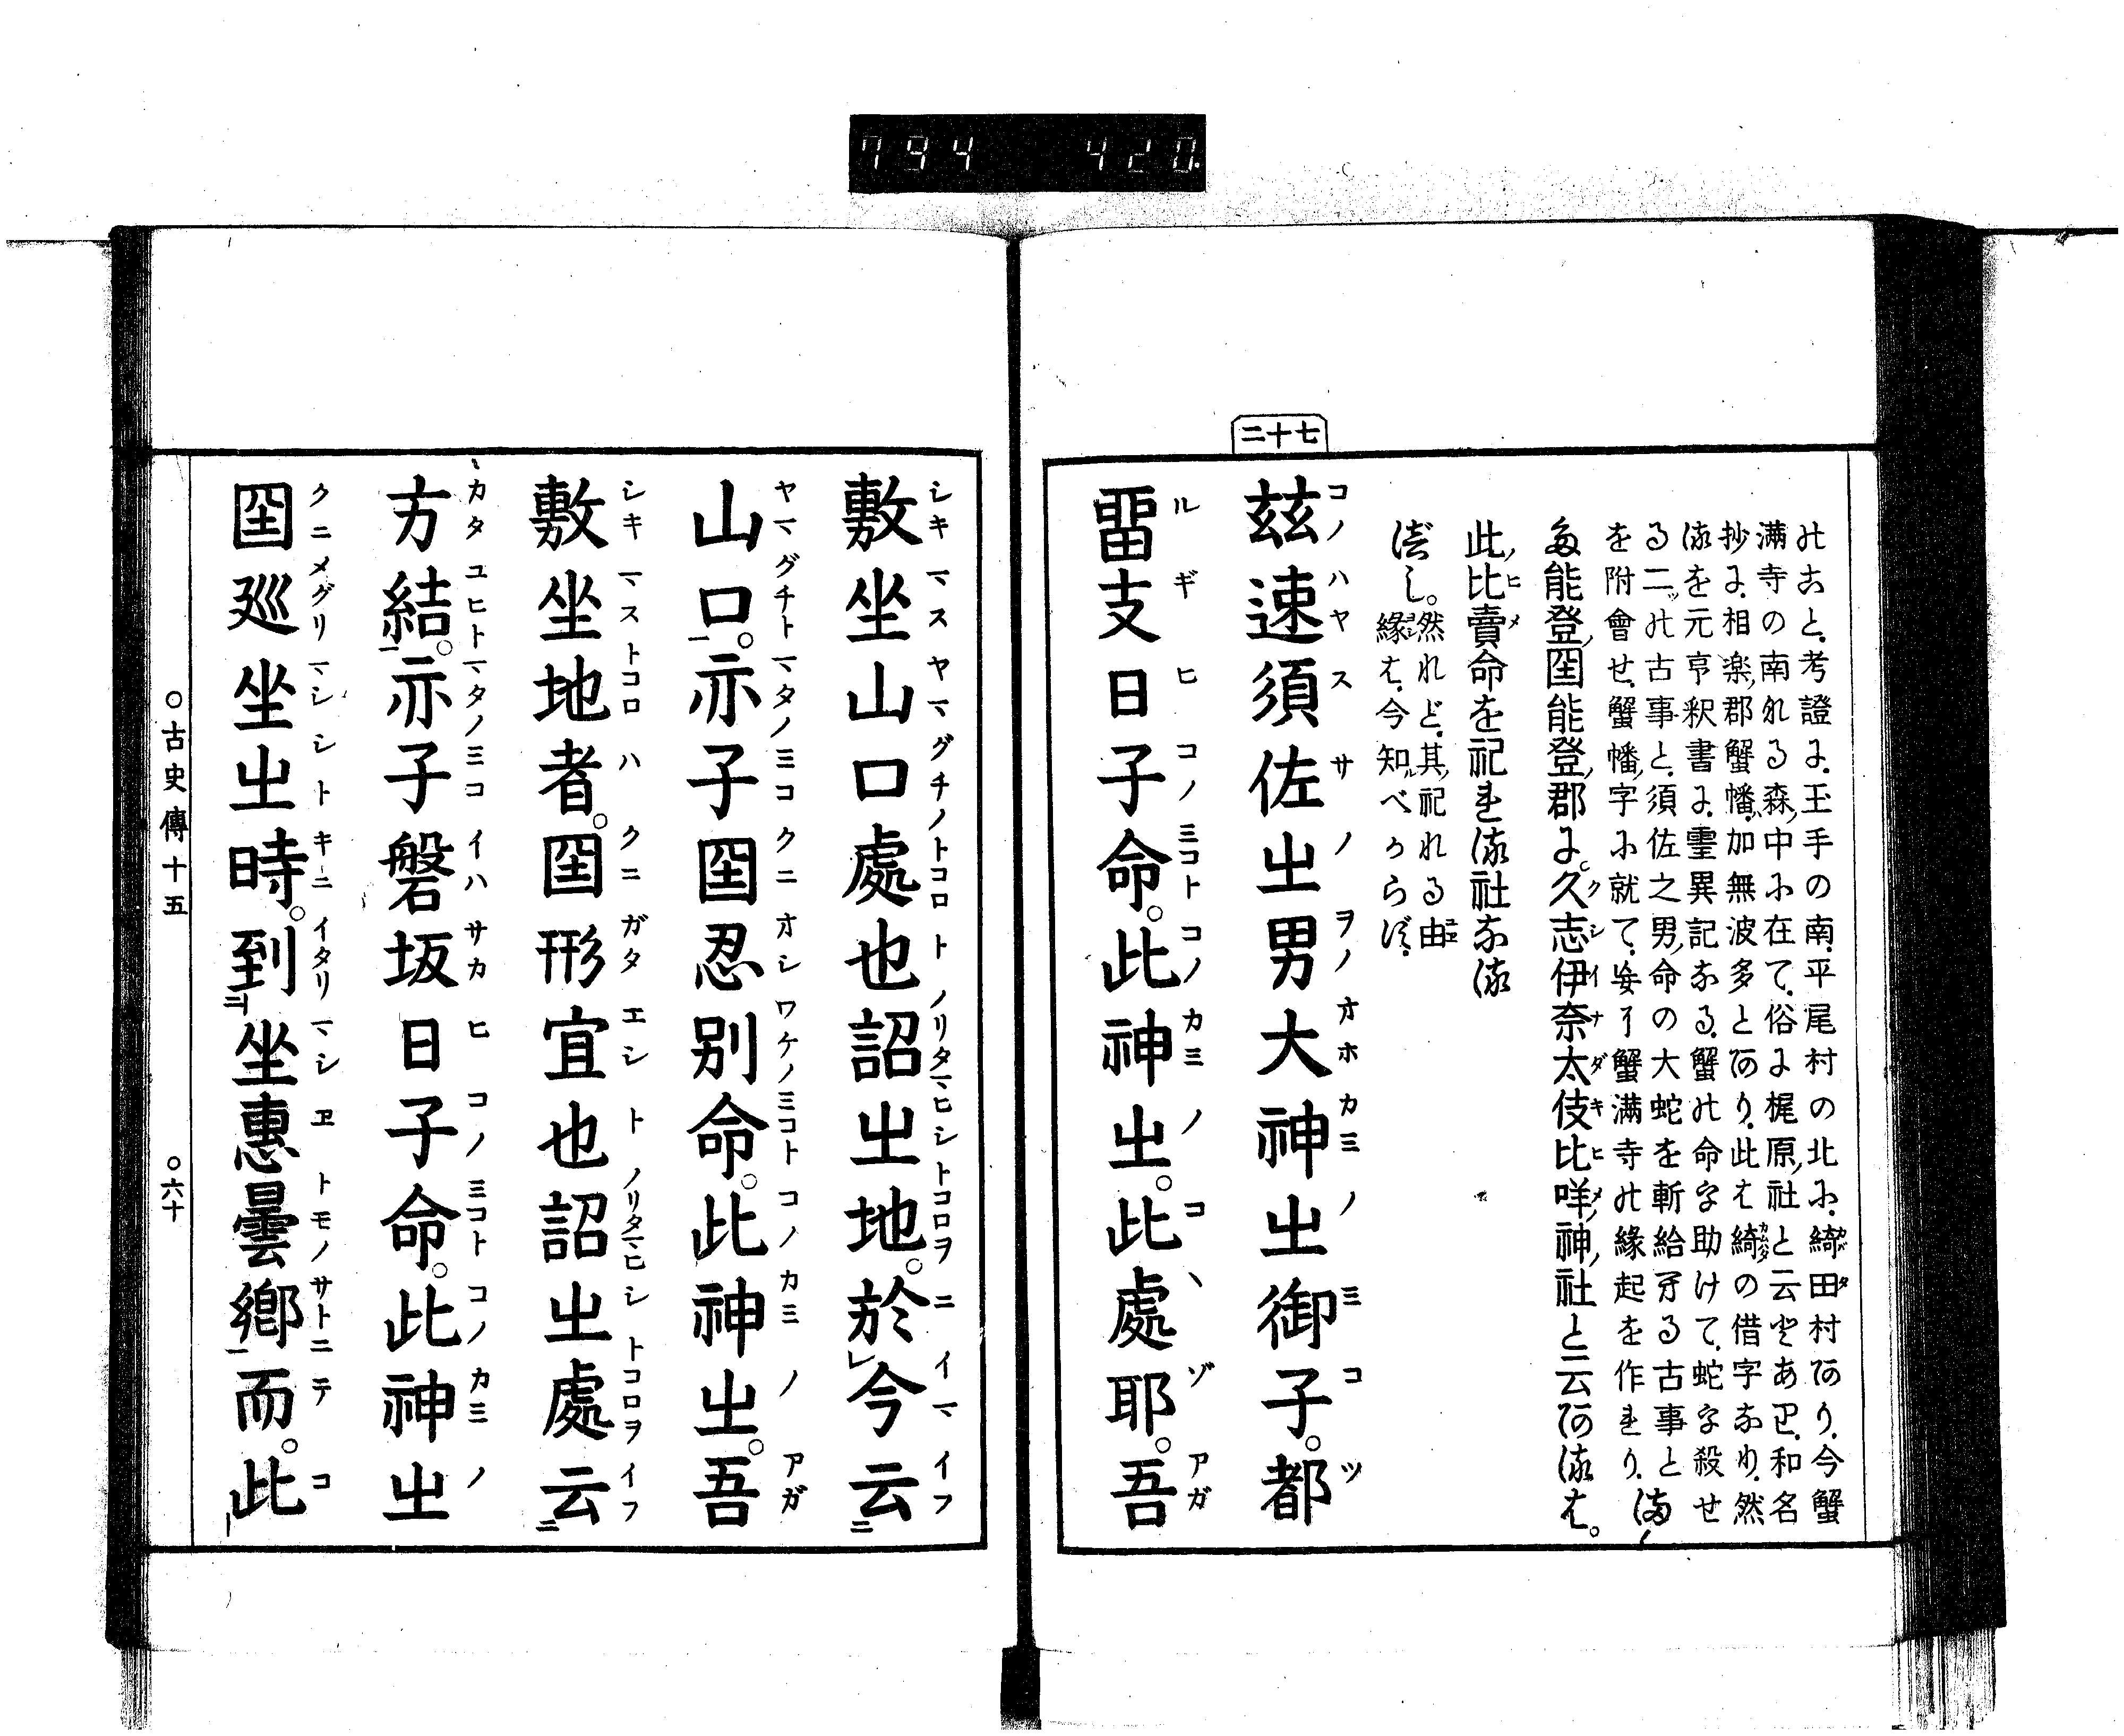 794 420
のこと、考證に、王手の南、平尾村の北に、綺田村あり、今蟹
満寺の南なる森中に在て、俗に梶原社と云とあり、和名
抄に、相楽郡蟹幡、加無波多とあり、此は綺の借字なり、然
るを元亨釈書に、霊異記なる、蟹の命を助けて、蛇を殺せ
る二ツの古事と、須佐之男命の大蛇を斬給へる古事と
を附會せ、蟹幡字に就て、妄に蟹満寺の緣起を作れり、また
能登国能登郡に。久志伊奈太伎比咩神社と云あるは。
此比賣命を祀れる社なる
べし。然れど、其祀れる由
緣は、今知べからず、
二十七
玆速須佐㞢男大神㞢御子。都
畱支日子命。此神㞢。此處耶。吾
敷坐山口處也詔㞢地。於今云
山口。亦子囶忍別命。此神㞢。吾
敷坐地者。囶形宜也詔㞢處云
方結。亦子磐坂日子命。此神㞢
囶廵坐㞢時。到坐惠曇鄉而。此
○古史傳十五 ○六十